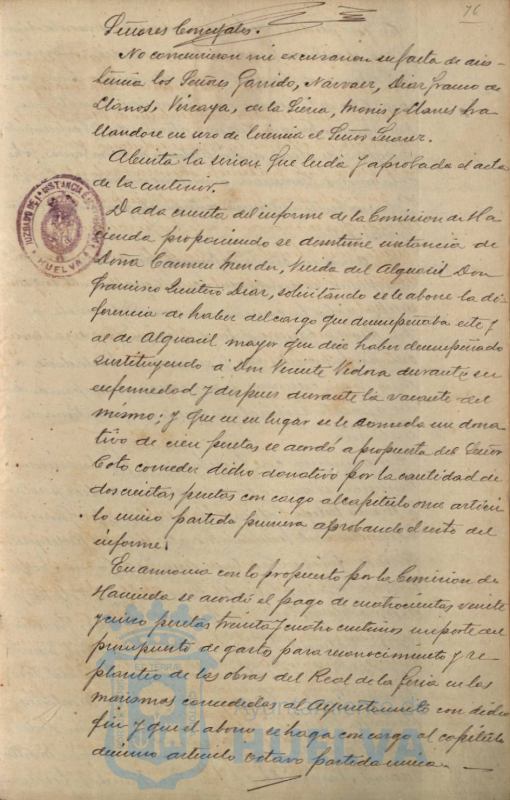 76
Señores Concejales.
No concurrieron ni excusaron su falta de asis-
tencia los Señores Garrido, Narvaez, Diaz franco de
Llanos, Vizcaya, de la Sierra, Monis y Llanes ha-
llandose en uso de licencia el Señor Suarez.
Abierta la sesion que leida y aprobada el acta
de la anterior.
Dada cuenta del informe de la Comision de Ha-
cienda proponiendo se desestime instancia de
Doña Carmen Mendez, Viuda del Alguacil Don
Francisco Quintero Diaz, solicitando se le abone la di-
ferencia de haber del cargo que desempeñaba este y
al de Alguacil mayor que dice haber desempeñado
sustituyendo á Don Vicente durante su
enfermedad y despues durante la vacante del
mismo; y que en su lugar se le conceda un dona-
tivo de cien pesetas se acordó a propuesta del Señor
Coto conceder dicho donativo por la cantidad de
doscientas pesetas con cargo al capitulo once articu-
lo unico partida primera aprobando el resto del
informe.
En armonia con lo propuesto por la Comision de
Hacienda se acordó el pago de cuatrocientas veinte
y cinco pesetas treinta y cuatro centimos importe del
presupuesto de gastos para reconocimiento y re-
planteo de las obras del Real de la feria en las
marismas concedidas al Ayuntamiento con dicho
fin y que el abono se haga con cargo al capitulo
decimo articulo octavo partida unica.
JUZGADO DE 1ª INSTANCIA E INSTRUCCION
HUELVA
Ayuntamiento
HUELVA